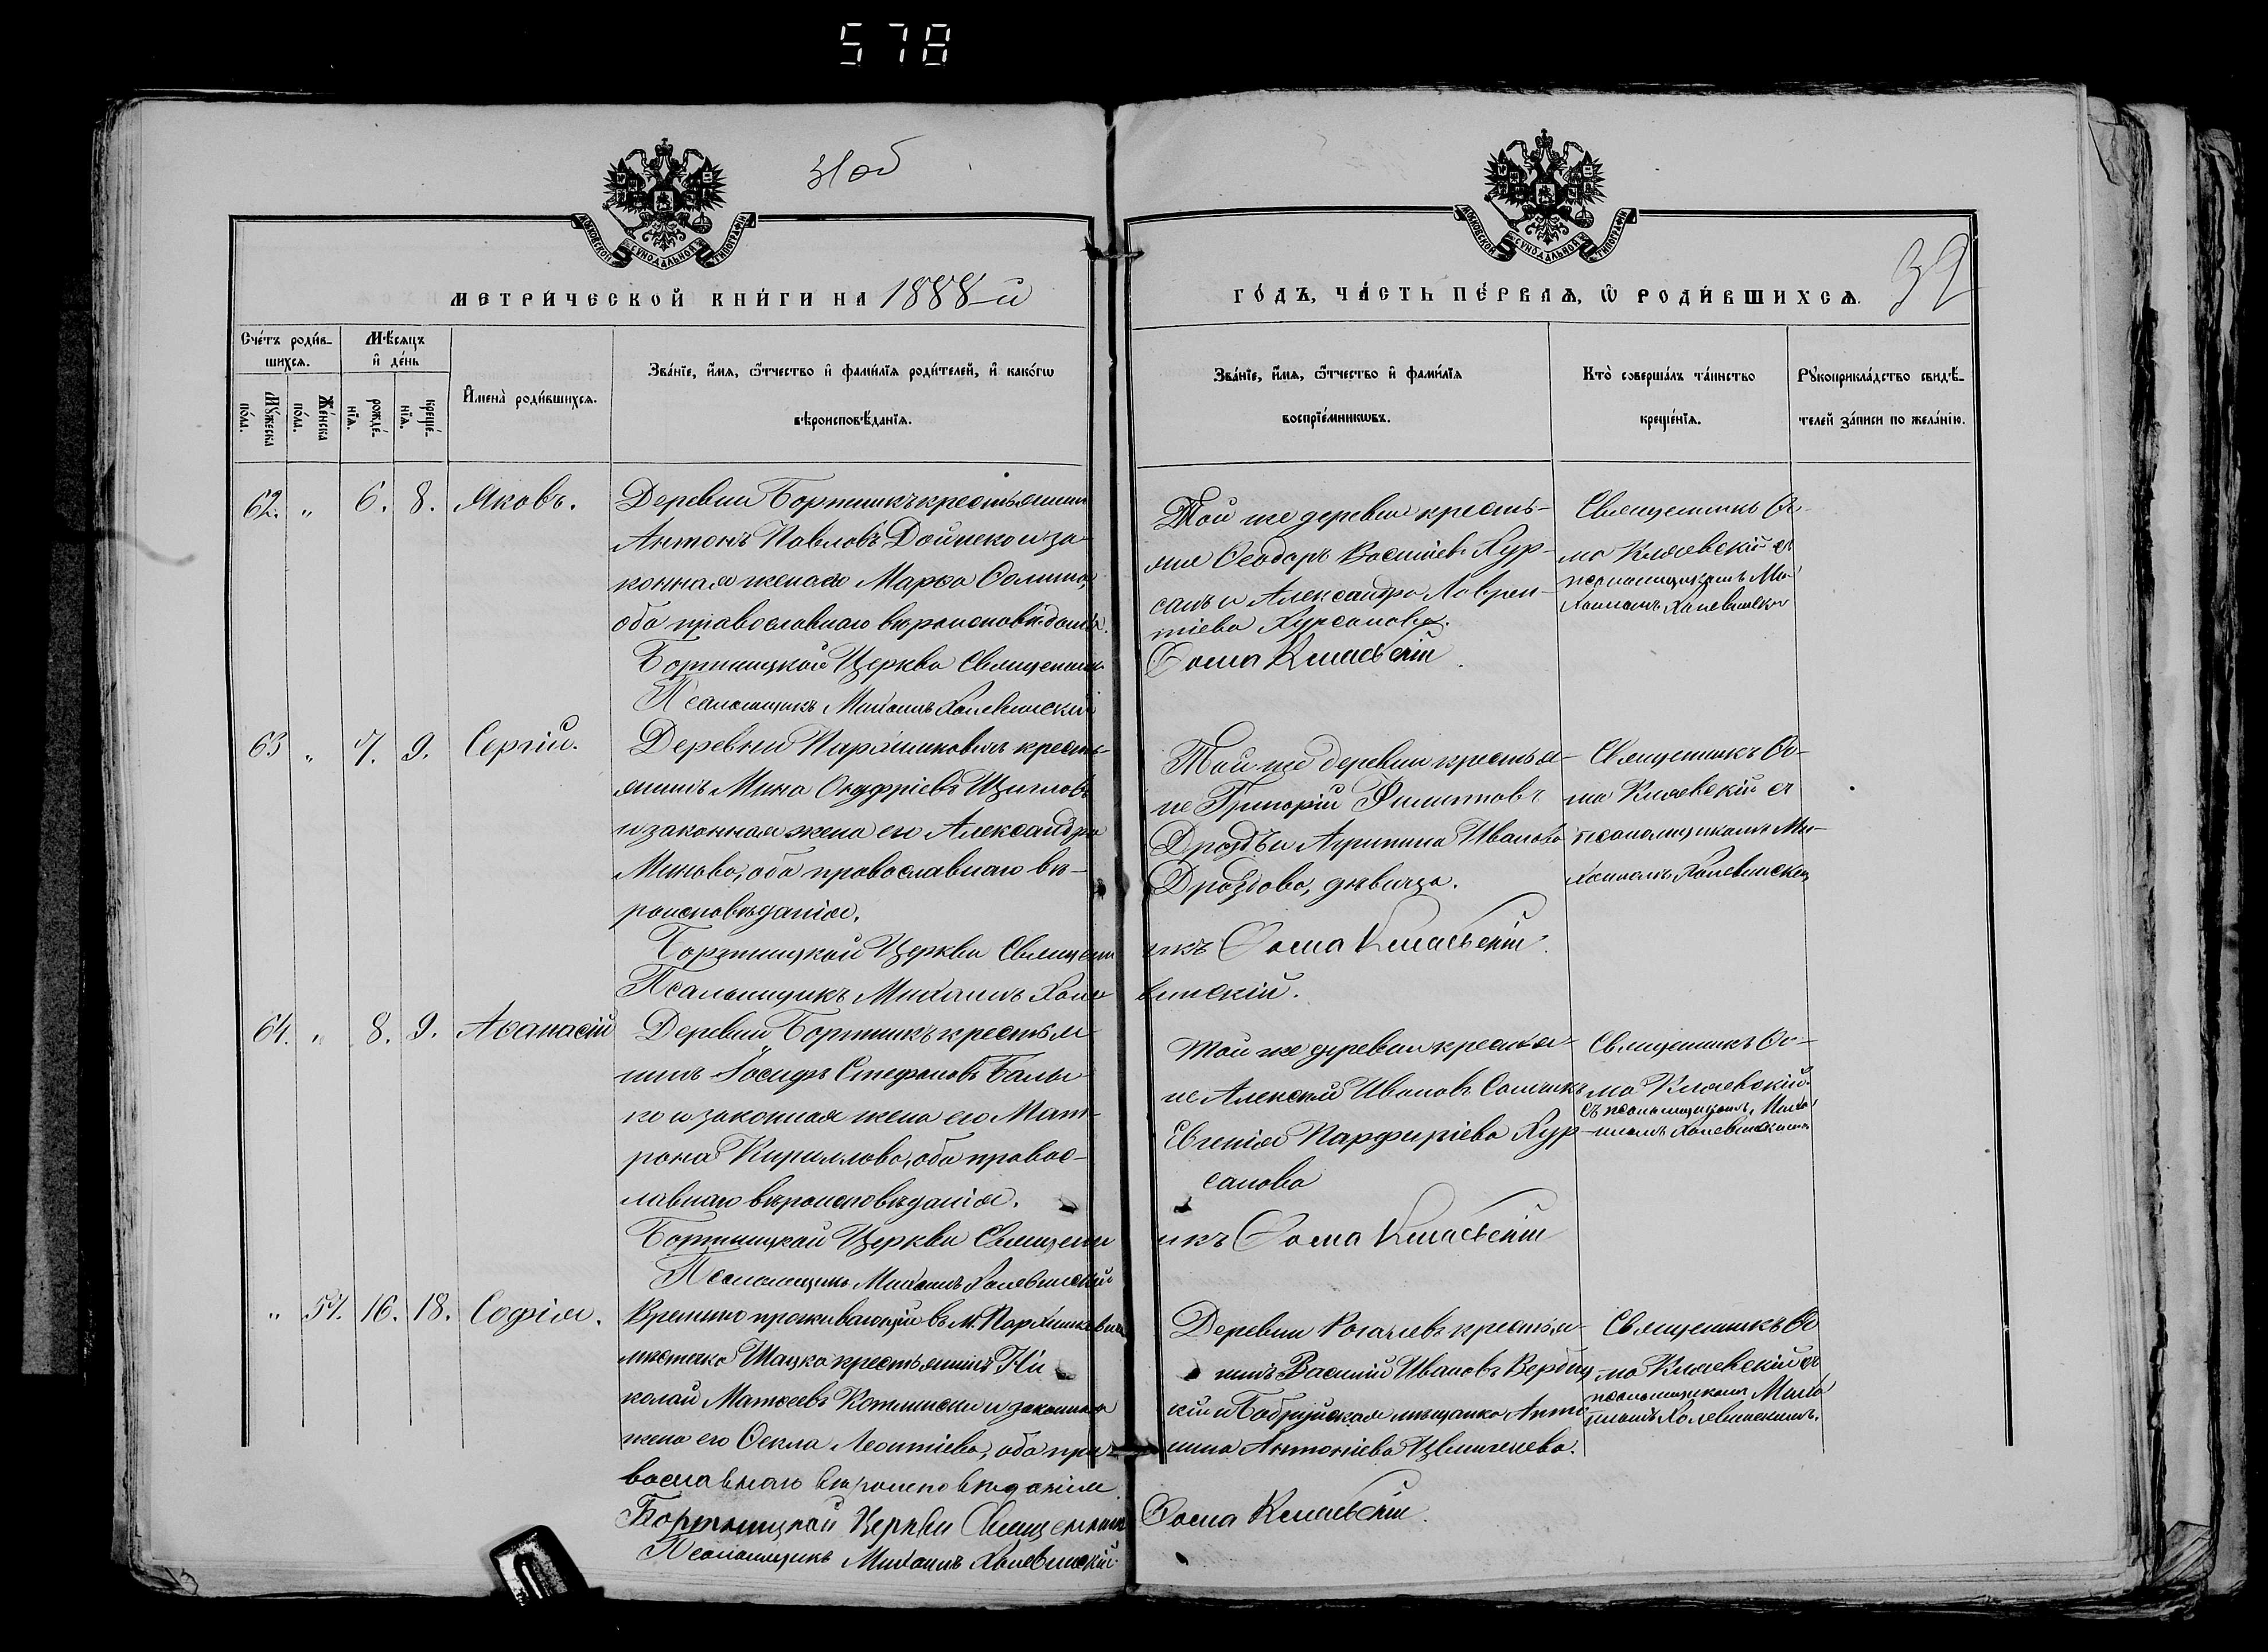 578
31 об
МОСКОВСКОЙ СѴНОДАЛЬНОЙ ТИПОГРАФІИ
МОСКОВСКОЙ СѴНОДАЛЬНОЙ ТИПОГРАФІИ
МЕТРИ́ЧЕСКОЙ КНИ́ГИ НА 1888-й
ГО́ДЪ, ЧА́СТЬ ПЕ́РВАѦ, Ѡ҆ РОДИ́ВШИХСѦ.
32
Сче́тъ роди́в-
шихсѧ.
Мꙋ́жеска
по́ла.
Же́нска
по́ла.
Мѣ́сѧцъ
и҆ де́нь
рожде́-
нїѧ.
креще́-
нїѧ.
И҆мена̀ роди́вшихсѧ.
Зва́нїе, и҆́мѧ, ѻ҆́тчество и҆ фами́лїѧ роди́телей, и҆ како́гѡ
вѣроисповѣ́данїѧ.
Зва́нїе, и҆́мѧ, ѻ҆́тчество и҆ фами́лїѧ
воспрїе́мникѡвъ.
Кто̀ соверша́лъ та́инство
креще́нїѧ.
Рꙋкоприкла́дство свидѣ́-
телей за́писи по жела́нїю.
62. „ 6. 8. Яковъ.
Деревни Бортникъ крестьянинъ
Антонъ Павловъ Дойнеко и за-
конная жена его Марѳа Ѳомина,
оба православнаго вѣроисповѣданія.
Бортницкой Церкви Священникъ
Псаломщикъ Михаилъ Холевинскій
Той же деревни кресть-
яне Ѳеодоръ Василіевъ Хур-
санъ и Александра Лаврен-
тіева Хурсанова.
Ѳома Клаевскій
Священникъ Ѳо-
ма Клаевскій съ
псаломщикомъ Ми-
хаиломъ Холевински
63 „ 7. 9. Сергій.
Деревни Пархимковичъ кресть-
янинъ Мина Онуфріевъ Щигловъ
и законная жена его Александра
Минова, оба православнаго вѣ-
роисповѣданія.
Бортницкой Церкви Священ
Псаломщикъ Михаилъ Холе
Той-же деревни крестья-
не Григорій Филипповъ
Дроздъ и Агрипина Иванова
Дроздова, дѣвица.
икъ Ѳома Клаевскій
винскій.
Священникъ Ѳо-
ма Клаевскій съ
псаломщикомъ Ми-
хаиломъ Холевински
64. „ 8. 9. Аѳанасій
Деревни Бортникъ крестья-
нинъ Іосифъ Стефановъ Балы-
ко и законная жена его Мат-
рона Кириллова, оба правос-
лавнаго вѣроисповѣданія.
Бортницкой Церкви Священн
Псаломщикъ Михаилъ Холевинскій
Той же деревни крестья-
не Алексій Ивановъ
Евгенія Парфиріева Хур-
санова
икъ Ѳома Клаевскій
Священникъ Ѳо-
ма Клаевскій
съ псаломщикомъ Миха-
иломъ Холевинскимъ
„ 57. 16. 18. Софія.
Временно проживающій въ м. Пархимковичи
мѣстечка Шацка крестьянинъ Ни
колай Матѳеевъ и законная
жена его Ѳекла Леонтіева, оба пра-
вославнаго вѣроисповѣданія
Бортницкой Церкви Священникъ
Псаломщикъ Михаилъ Холевинскій
Деревни Рогачевъ крестья-
нинъ Василій Ивановъ Вербиц
кій и Бобруйская мѣщанка Анто
нина Антоніева
Ѳома Клаевскій.
Священникъ Ѳо
ма Клаевскій съ
псаломщикомъ Миха
иломъ Холевинскимъ.